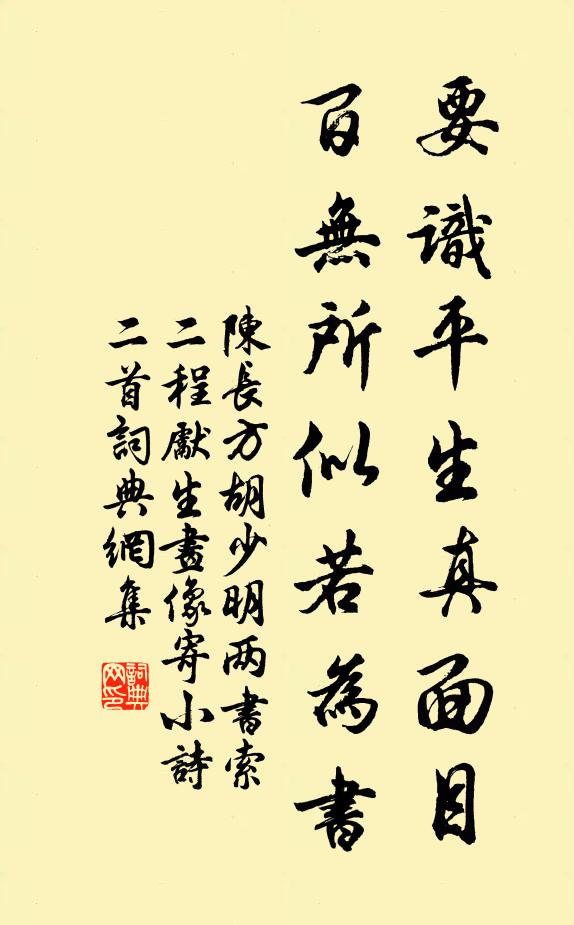 要識平生真面目
百無所似若為書
陳長方胡少明两書索
二程獻生畫像寄小詩
二首詞典網集
詞典网印